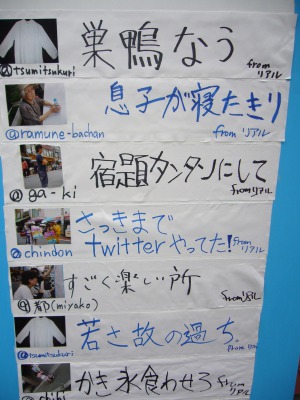 巣鴨なう
@tsumitsukuri
from リアル
息子が寝たきり
@ramune-bachan
from リアル
宿題カンタンにして
@ga-ki
from リアル
さっきまで
twitterやってた!
@chindon
from リアル
すごく楽しい所
@都(miyako)
from リアル
若さ故の過ち
@tsumitsukuri
from リアル
かき氷食わせろ
@chibi
from リアル